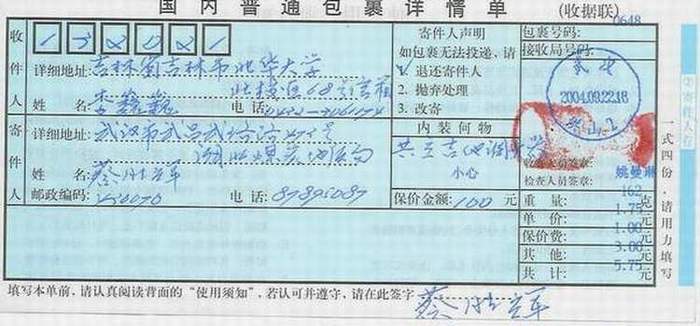 国内普通包裹详情单 (收据联)
0648
收件人
132021
详细地址: 吉林省吉林市北华大学
北校区68号信箱
姓 名 李巍巍 电 话
寄件人
详细地址: 武汉市武昌武珞路
湖北煤炭地质局
姓 名 蔡胜军
邮政编码: 430070 电 话: 87895087
寄件人声明
如包裹无法投递,请
1. 退还寄件人
2. 抛弃处理
3. 改寄
内装何物
小心
保价金额: 100 元
包裹号码:
接收局号码:
2004.09.22.18
收检人员签章:
检查人员签章: 姚曼琳
重 量: 162 克
单 价: 1.75 元
保价费: 1.00 元
其 他: 3.00 元
共 计: 5.75 元
一式四份,请用力填写
填写本单前,请认真阅读背面的“使用须知”,若认可并遵守,请在此签字 蔡胜军